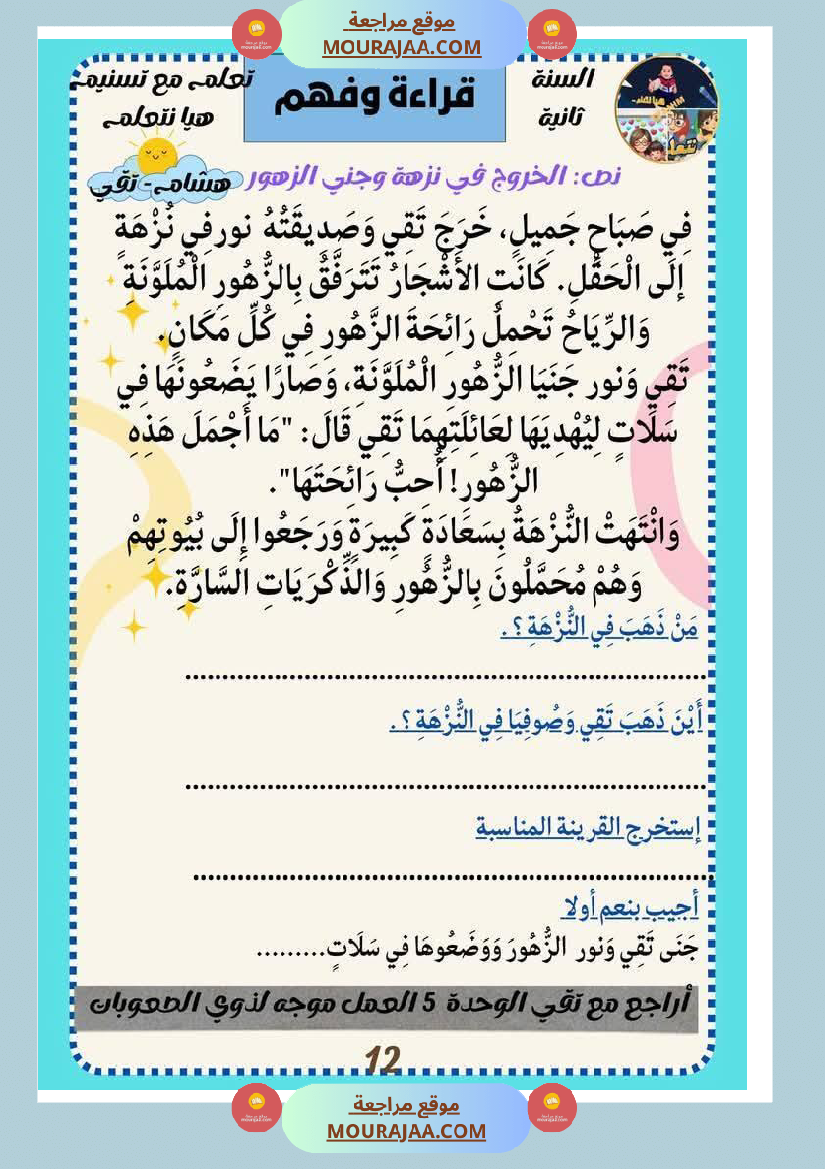 موقع مراجعة
MOURAJAA.COM
تعلمي مع تسنيم
هيا نتعلم
قراءة وفهم
السنة
ثانية
هشام - تقي
نص: الخروج في نزهة وجني الزهور
فِي صَبَاحٍ جَمِيلٍ، خَرَجَ تَقِي وَصَدِيقَتُهُ نور فِي نُزْهَةٍ
إِلَى الْحَقْلِ. كَانَتِ الأَشْجَارُ تَتَرَفَّقُ بِالزُّهُورِ الْمُلَوَّنَةِ
وَالرِّيَاحُ تَحْمِلُ رَائِحَةَ الزَّهُورِ فِي كُلِّ مَكَانٍ.
تَقِي وَنور جَنَيَا الزُّهُورِ الْمُلَوَّنَةِ، وَصَارًا يَضَعُونَهَا فِي
سَلَاتٍ لِيُهْدِيَهَا لِعَائِلَتِهِمَا تَقِي قَالَ: "مَا أَجْمَلَ هَذِهِ
الزُّهُورِ! أُحِبُّ رَائِحَتَهَا".
وَانْتَهَتْ النُّزْهَةُ بِسَعَادَةٍ كَبِيرَةٍ وَرَجَعُوا إِلَى بُيُوتِهِمْ
وَهُمْ مُحَمَّلُونَ بِالزُّهُورِ وَالذِّكْرَيَاتِ السَّارَّةِ.
مَنْ ذَهَبَ فِي النُّزْهَةِ ؟ .
................................................................
أَيْنَ ذَهَبَ تَقِي وَصُوفِيَا فِي النُّزْهَةِ ؟ .
................................................................
إستخرج القرينة المناسبة
................................................................
أجيب بنعم أولا
جَنَى تَقِي وَنور الزُّهُورَ وَوَضَعُوهَا فِي سَلَاتٍ.........
أراجع مع تقي الوحدة 5 العمل موجه لذوي الصعوبات
12
موقع مراجعة
MOURAJAA.COM